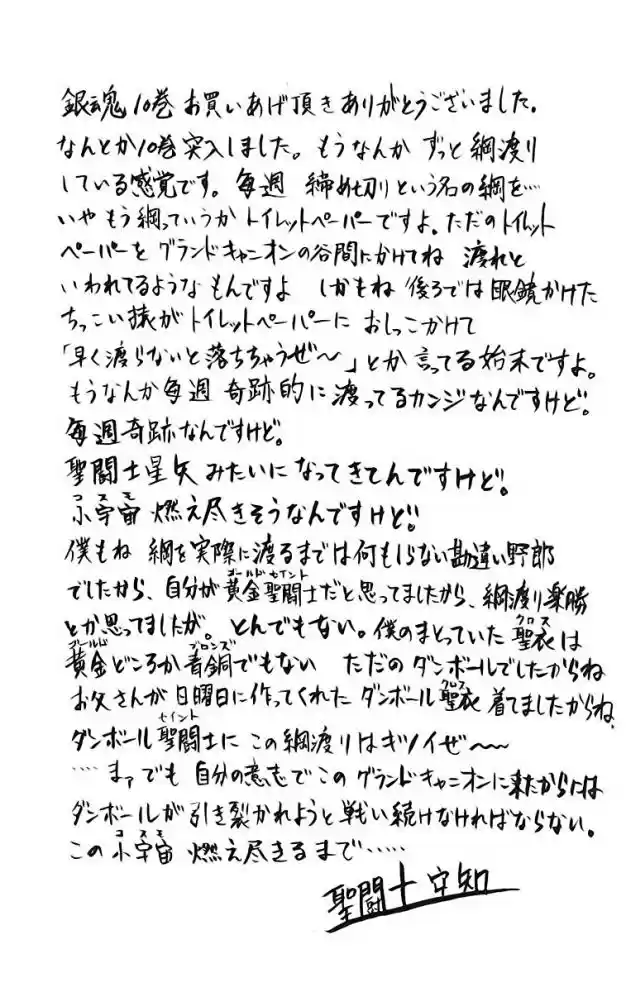 銀魂10巻お買いあげ頂きありがとうございました。
なんとか10巻突入しました。もうなんか ずっと綱渡り
している感覚です。毎週 締め切りという名の綱を…
いや もう綱っていうか トイレットペーパーですよ。ただのトイレット
ペーパーを グランドキャニオンの谷間にかけてね 渡れと
いわれてるような もんですよ しかもね 後ろでは眼鏡かけた
ちっこい猿がトイレットペーパーに おしっこかけて
「早く渡らないと落ちちゃうぜ〜」とか言ってる始末ですよ。
もうなんか毎週 奇跡的に渡ってるカンジなんですけど。
毎週奇跡なんですけど。
聖闘士星矢みたいになってきてんですけど。
小宇宙(コスモ) 燃え尽きそうなんですけど。
僕もね 綱を実際に渡るまでは何もしらない勘違い野郎
でしたから、自分が黄金聖闘士(ゴールドセイント)だと思ってましたから、綱渡り楽勝
とか思ってましたが。とんでもない。僕のまとっていた聖衣(クロス)は
黄金(ゴールド)どころか青銅(ブロンズ)でもない ただのダンボールでしたからね
お父さんが日曜日に作ってくれた ダンボール聖衣(クロス)着てましたからね。
ダンボール聖闘士(セイント)に この綱渡りはキツイぜ〜〜
……まァでも 自分の意志でこの グランドキャニオンに来たからには
ダンボールが引き裂かれようと戦い続けなければならない。
この小宇宙(コスモ) 燃え尽きるまで……
聖闘士 空知